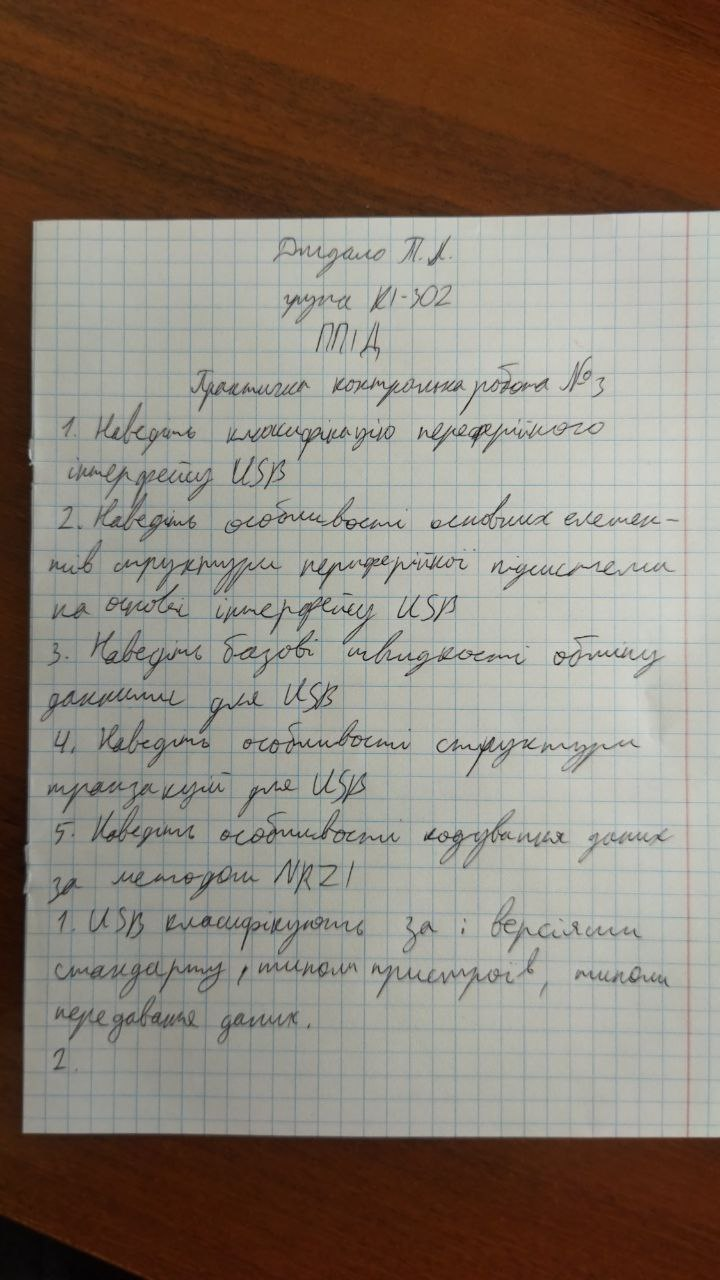 Дигдало Т.Л.
група КІ-302
ППІД
Практична контрольна робота №3
1. Наведіть класифікацію переферійного
інтерфейсу USB
2. Наведіть особливості основних елемен-
тів структури периферійної підсистеми
на основі інтерфейсу USB
3. Наведіть базові швидкості обміну
данними для USB
4. Наведіть особливості структури
транзакцій для USB
5. Наведіть особливості кодування даних
за методом NRZI
1. USB класифікують за: версіями
стандарту, типом пристроїв, типом
передавання даних.
2.